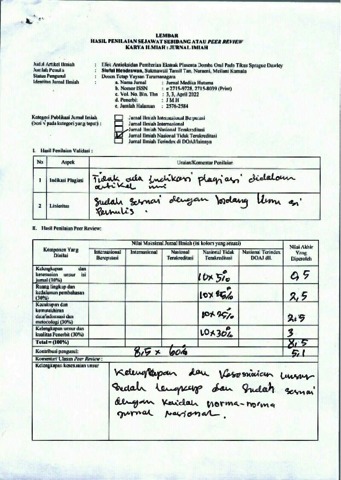 LEMBAR
HASIL PENILAIAN SEJAWAT SEBIDANG ATAU PEER REVIEW
KARYA ILMIAH : JURNAL IMIAH
Judul Artikel Ilmiah : Efek Antioksidan Pemberian Ekstrak Plasenta Domba Oral Pada Tikus Sprague Dawley
Jumlah Penulis : Sukmawati Tansil Tan, Meilani Kumala
Status Pengusul : Dosen Tetap Yayasan Tarumanagara
Identitas Jurnal Ilmiah : a. Nama Jurnal : Jurnal Medika Hutama
b. Nomor ISSN : e 2715-9728, 2715-8039 (Print)
c. Vol. No. Bln. Thn : 3, 3, April 2022
d. Penerbit : J M H
e. Jumlah Halaman : 2576-2584
Kategori Publikasi Jurnal Ilmiah : Jurnal Ilmiah Internasional Bereputasi
(beri √ pada kategori yang tepat) : Jurnal Ilmiah Internasional
Jurnal Ilmiah Nasional Terakreditasi
Jurnal Ilmiah Nasional Tidak Terakreditasi
Jurnal Ilmiah Terindex di DOAJ/lainnya
I. Hasil Penilaian Validasi :
No Aspek Uraian/Komentar Penilaian
1 Indikasi Plagiasi Tidak ada indikasi plagiasi didalam
artikel ini
2 Linieritas Sudah sesuai dengan bidang ilmu
penulis.
II. Hasil Penilaian Peer Review:
Komponen Yang Dinilai Nilai Maksimal Jurnal Ilmiah (isi kolom yang sesuai) Nilai Akhir Yang Diperoleh
Internasional Bereputasi Internasional Nasional Terakreditasi Nasional Tidak Terakreditasi Nasional Terindex DOAJ dll.
Kelengkapan dan kesesuaian unsur isi jurnal (10%) 10 x 5% 0,5
Ruang lingkup dan kedalaman pembahasan (30%) 10 x 25% 2,5
Kecukupan dan kemutakhiran data/informasi dan metodologi (30%) 10 x 25% 2,5
Kelengkapan unsur dan kualitas Penerbit (30%) 10 x 30% 3
Total = (100%) 8,5
Kontribusi pengusul : 8,5 x 60% 5,1
Komentar/ Ulasan Peer Review :
Kelengkapan kesesuaian unsur Kelengkapan dan kesesuaian unsur
sudah lengkap dan sudah sesuai
dengan kaidah norma-norma
jurnal nasional.